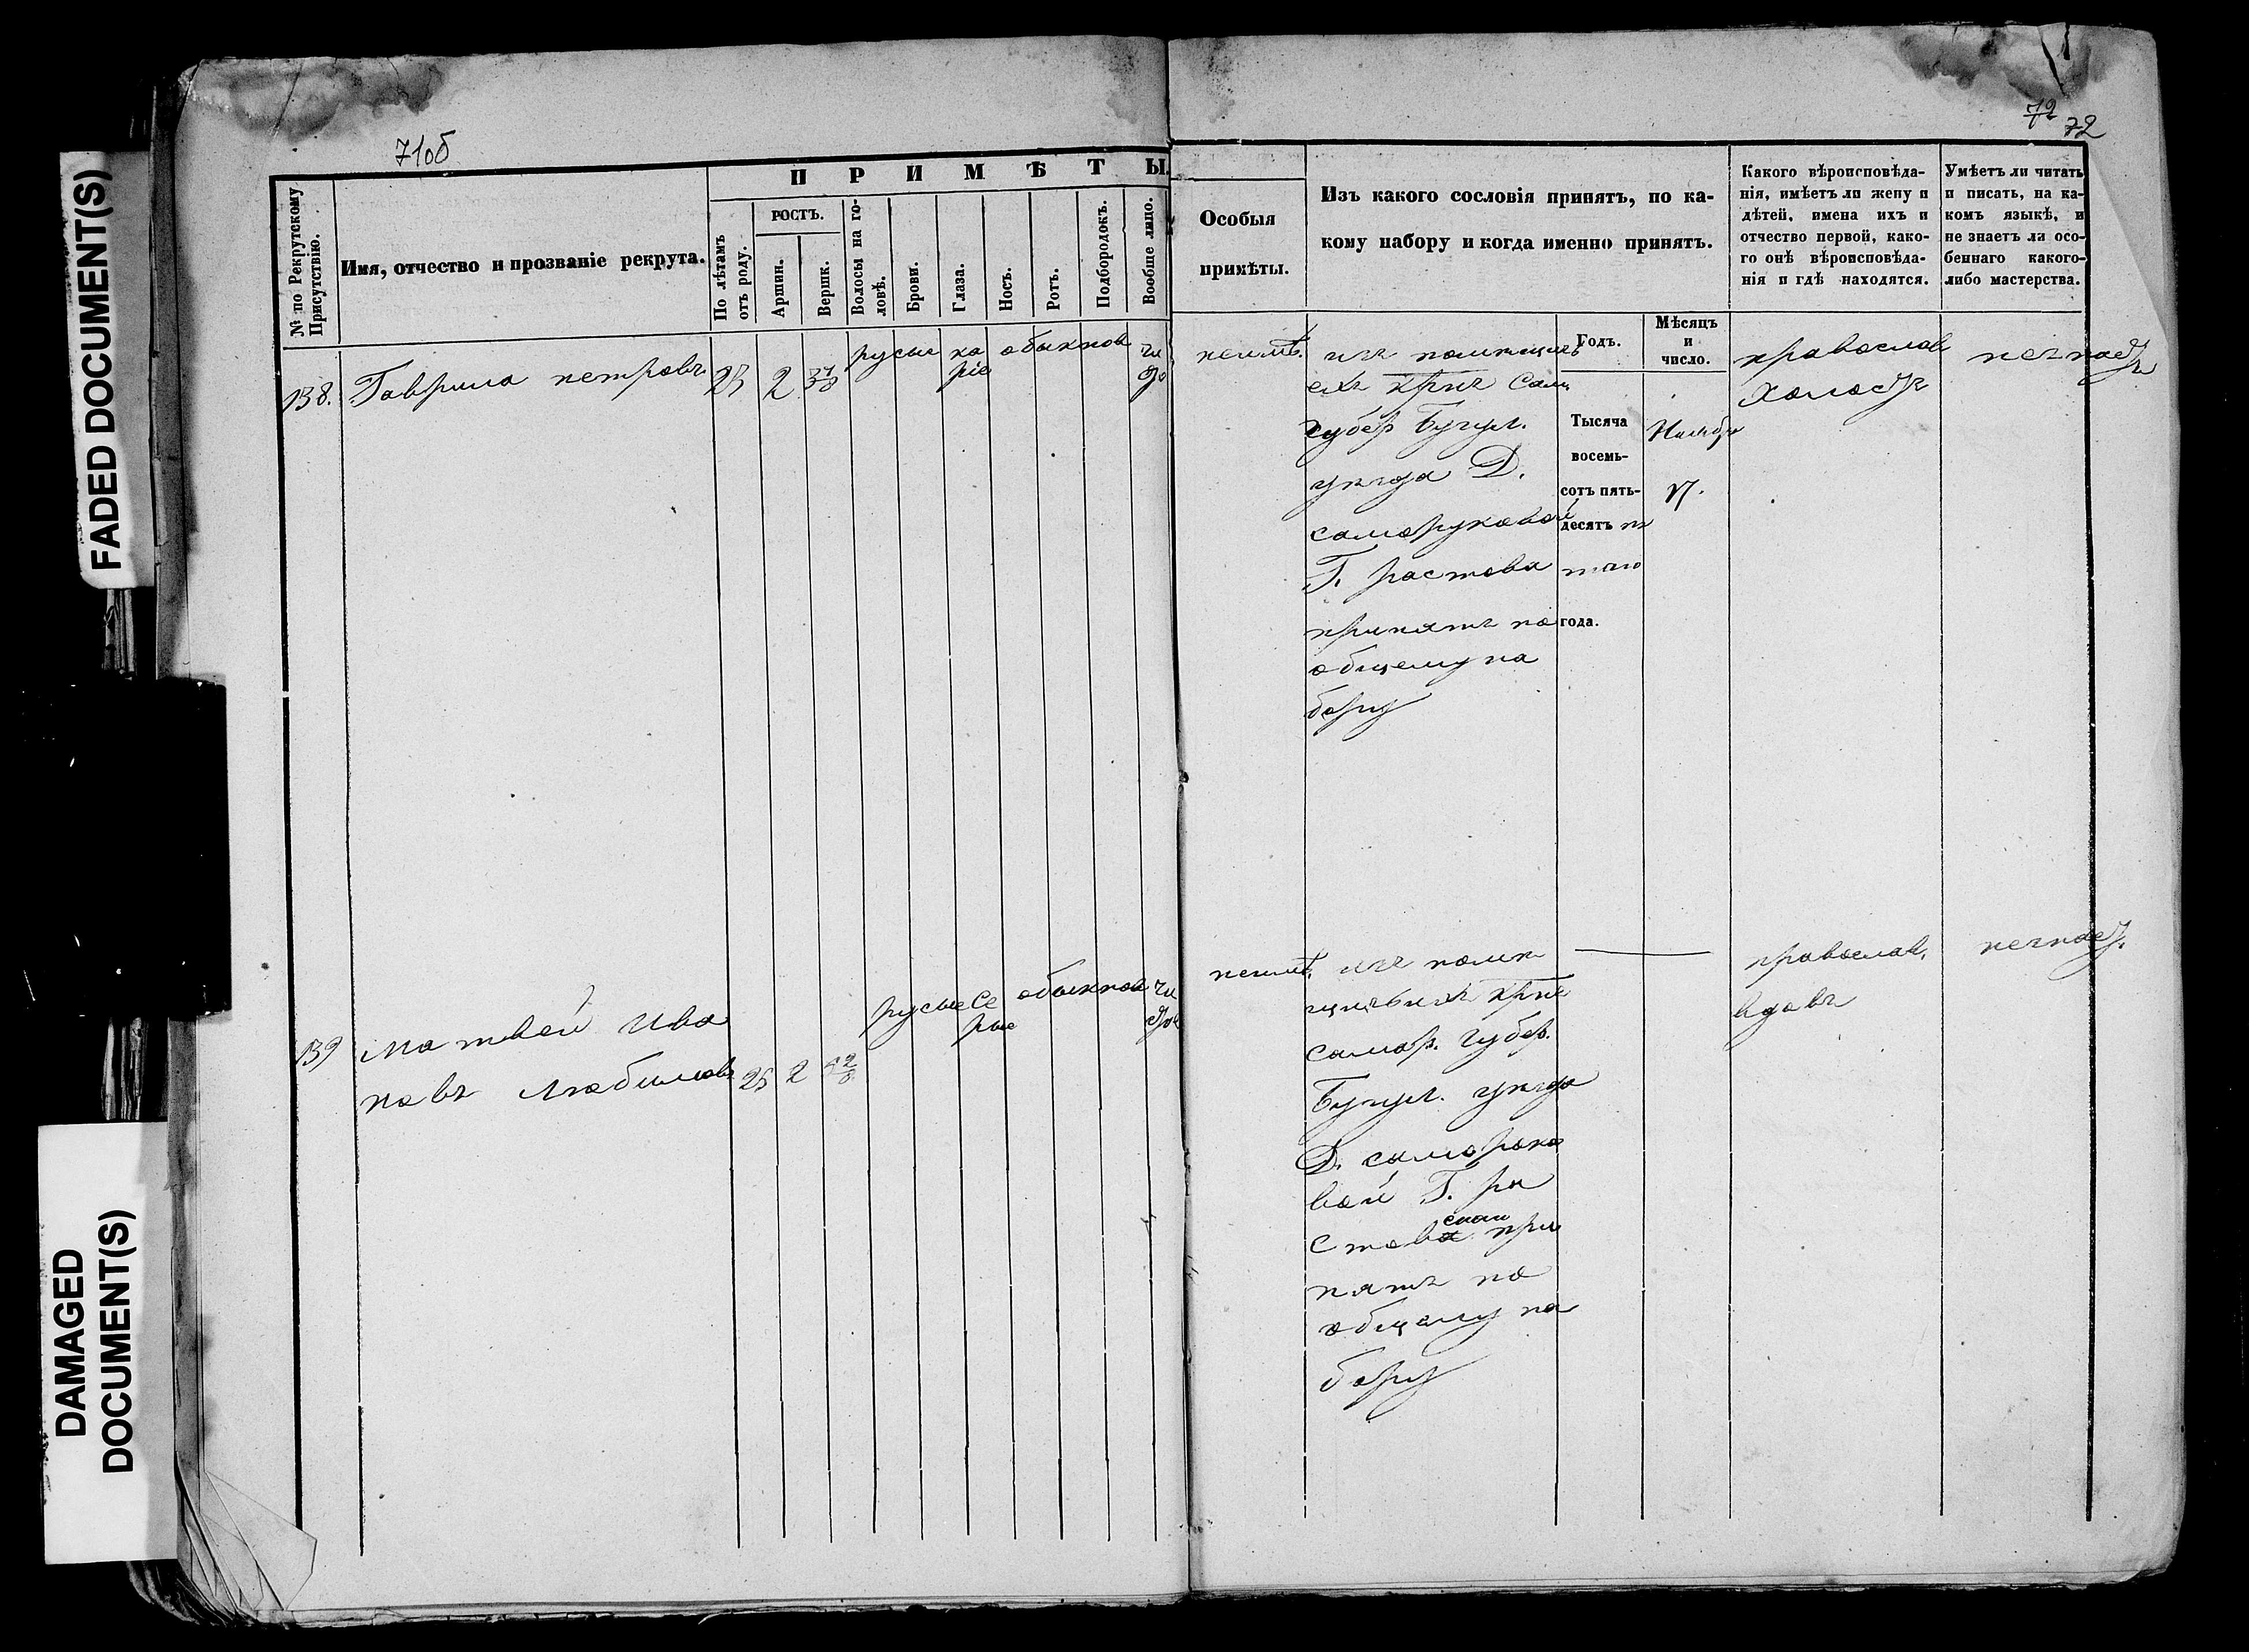 FADED DOCUMENT(S)
DAMAGED
DOCUMENT(S)
71об
72
72
ПРИМѢТЫ.
№ по Рекрутскому
Присутствію.
Имя, отчество и прозваніе рекрута.
По лѣтамъ
отъ роду.
РОСТЪ.
Аршин.
Вершк.
Волосы на го-
ловѣ.
Брови.
Глаза.
Носъ.
Ротъ.
Подбородокъ.
Вообще лицо.
Особыя
примѣты.
Изъ какого сословія принятъ, по ка-
кому набору и когда именно принятъ.
Годъ.
Мѣсяцъ
и
число.
Какого вѣроисповѣда-
нія, имѣетъ ли жену и
дѣтей, имена ихъ и
отчество первой, како-
го онѣ вѣроисповѣда-
нія и гдѣ находятся.
Умѣетъ ли читать
и писать, на ка-
комъ языкѣ, и
не знаетъ ли осо-
беннаго какого-
либо мастерства.
138. Гаврила петровъ 2 русые ка обыкнов чи
ріе сто
неимѣ.
изъ помѣщичь
ихъ крис Сам
губер Бугул.
уѣзда Д.
саморуковой
Г. растова
принятъ по
общему на
бору
Тысяча
восемь-
сотъ пять-
десятъ пя
таго
года.
Ноябр
17.
православ
холостъ
незнаетъ
139 Матвей Ива
новъ Любимовъ 25 2 4 2/8 русые Се обыкнов чи
рые стое
неимѣ.
изъ помѣ
щичьихъ крис
самар. губер.
Бугул. уѣзда
Д. саморуко
вой Г. ра
стова при
нятъ по
общему на
бору
православ.
вдовъ
незнает.